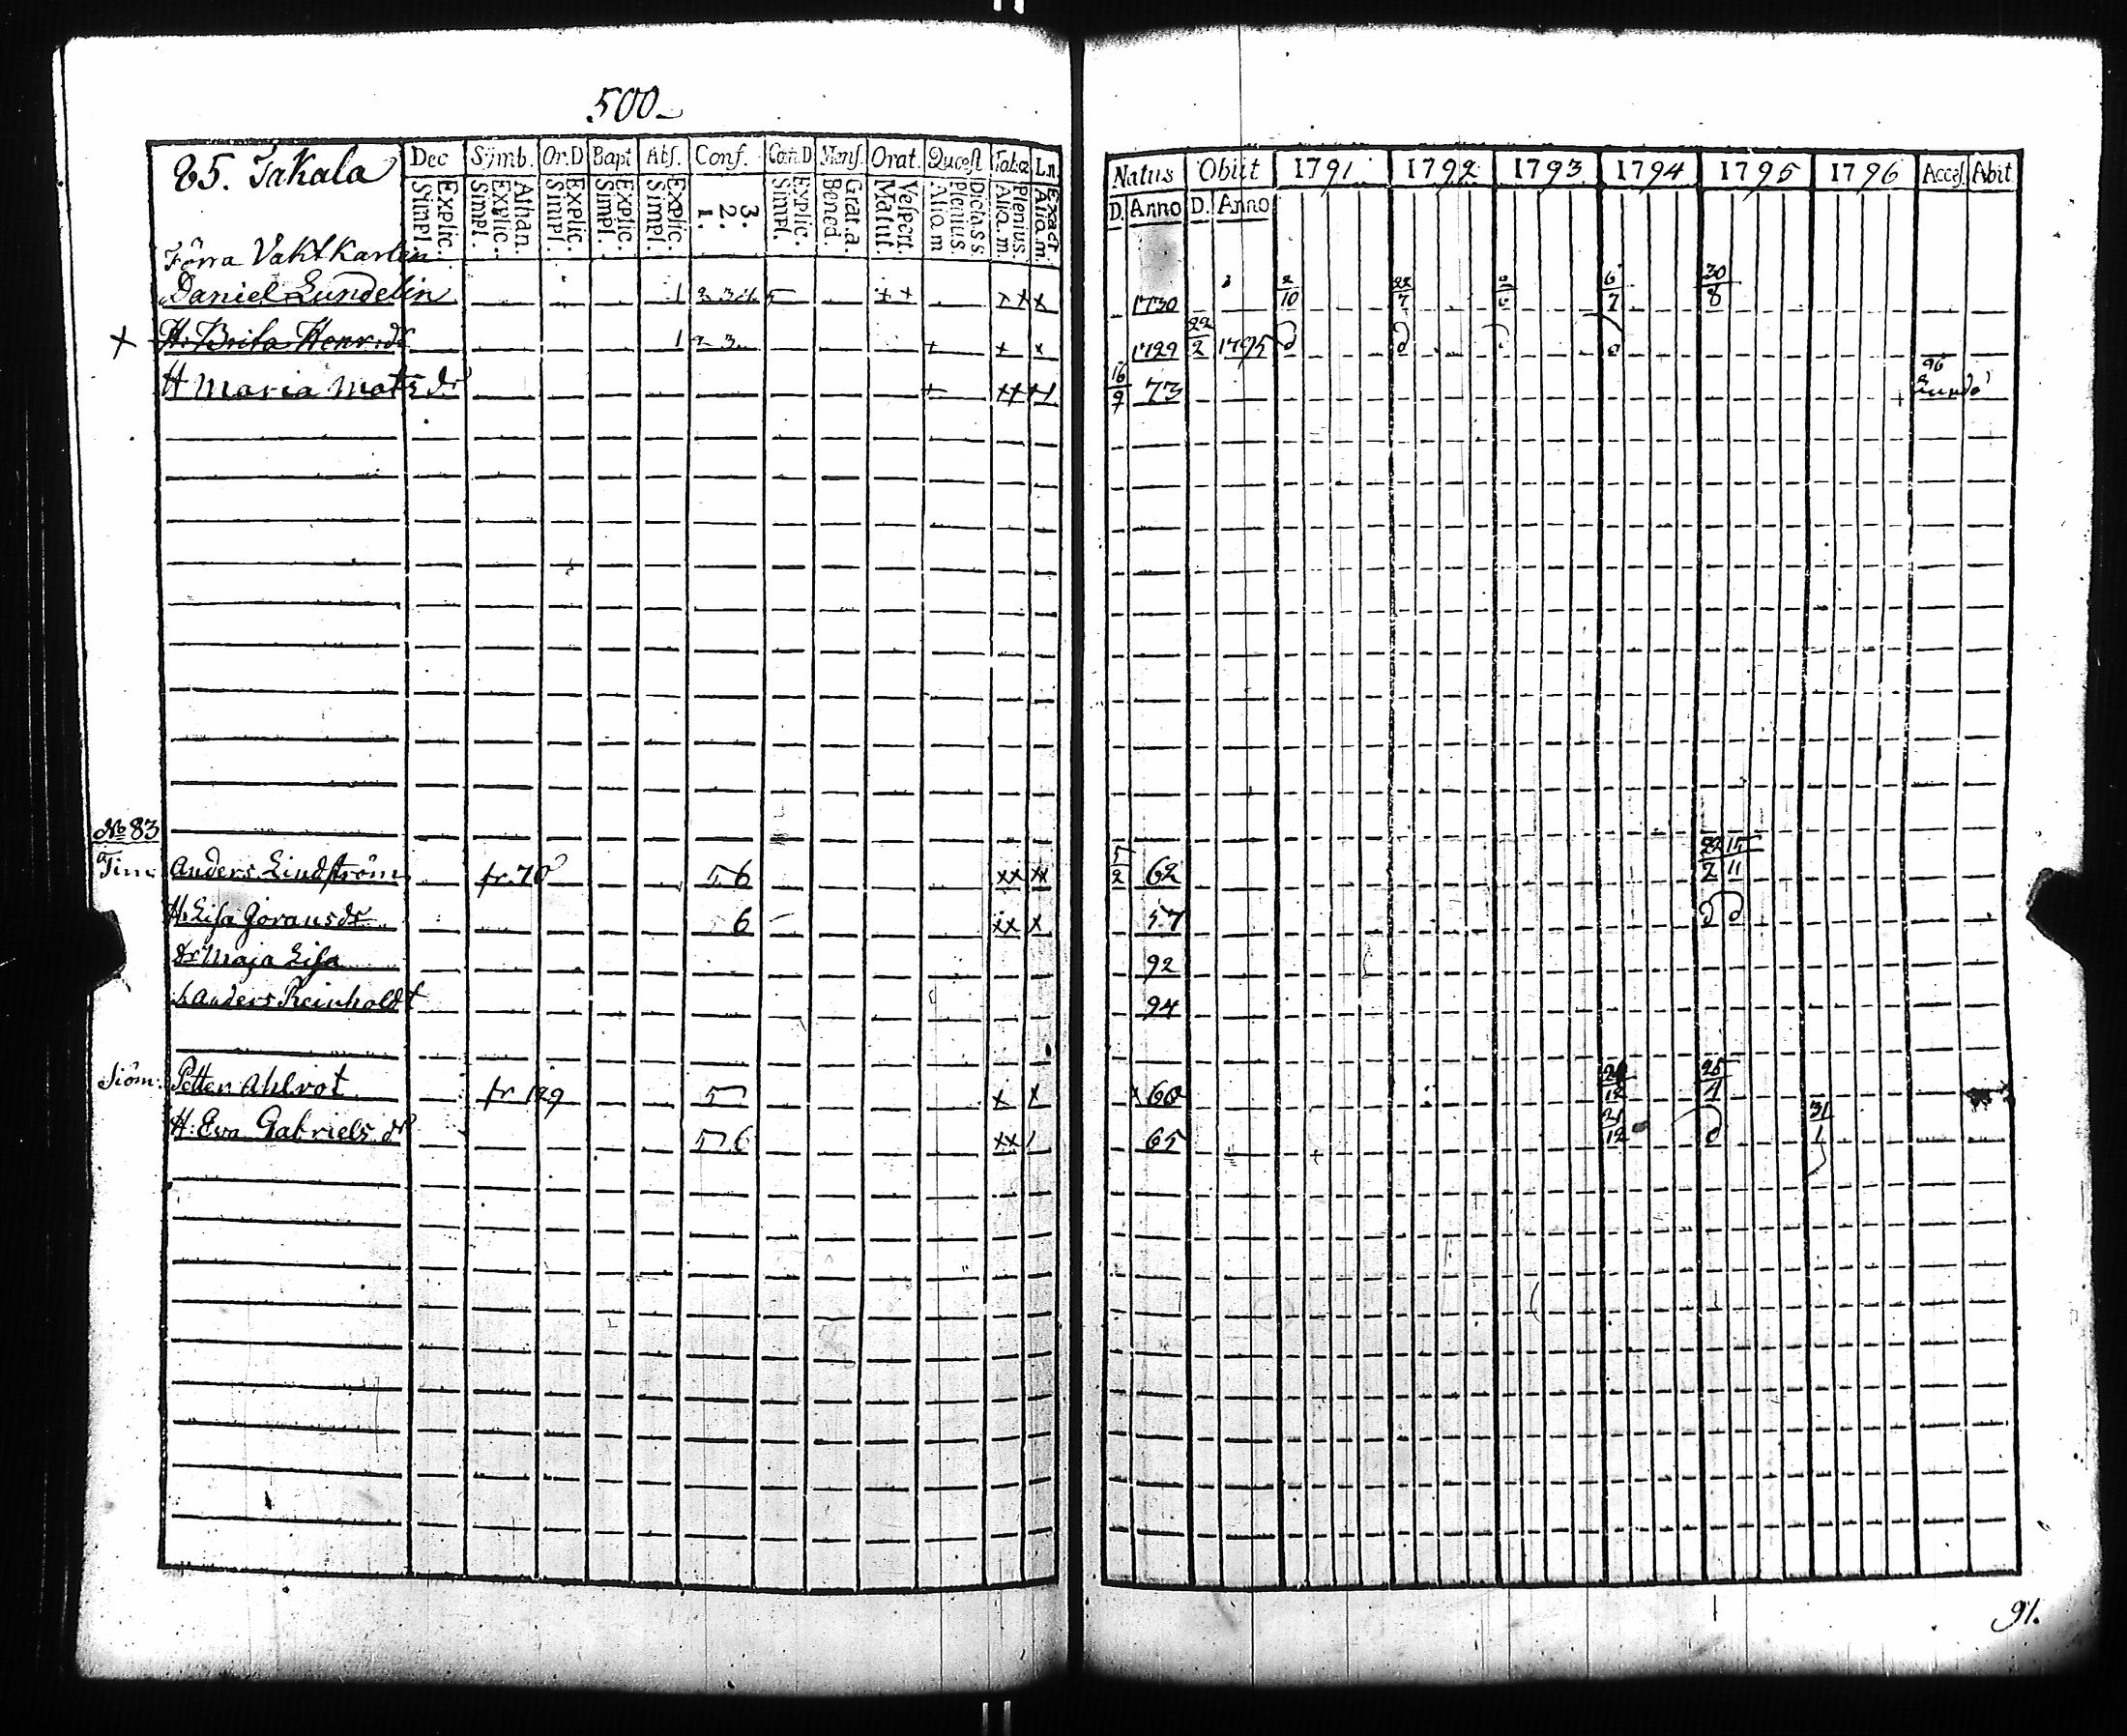 500
85. Takala Dec Symb. Or.D Bapt Abs. Conf. Cœn.D Mens. Orat. Quæst Tabæ Ln
Simpl. Explic. Simpl. Explic. Athan. Simpl. Explic. Simpl. Explic. Simpl. Explic. 1. 2. 3. Simpl. Explic. Bened. Grat.a. Matut. Vespert. Aliq m Plenius. Dicta.s.s. Aliq.m. Plenius. Aliq.m. Exact
Förra Vaktkarlen
Daniel Lundelin 1 2 3 4 5 ++ x x x
+ H. Brita Henr. dr 1 2 3 + x x
H Maria Mats dr + xx +1
No 83
Tim: Anders Lindström fr. 70 56 xx xx
H. Lisa Görans dr 6 xx x
dr Maja Lisa
s. Anders Reinholdt
Siöm: Petter Ahlrot fr 129 5 x x
H: Eva Gabriels dr 56 xx /
Natus Obiit 1791 1792 1793 1794 1795 1796 Acces. Abit
D. Anno D. Anno
1730 2/10 22/7 6/7 30/8
1729 22/2 1795
16/9 73 96
5/2 62 22/2 15/11
57
92
94
60 12 25/4
65 31/12 31/1
91.